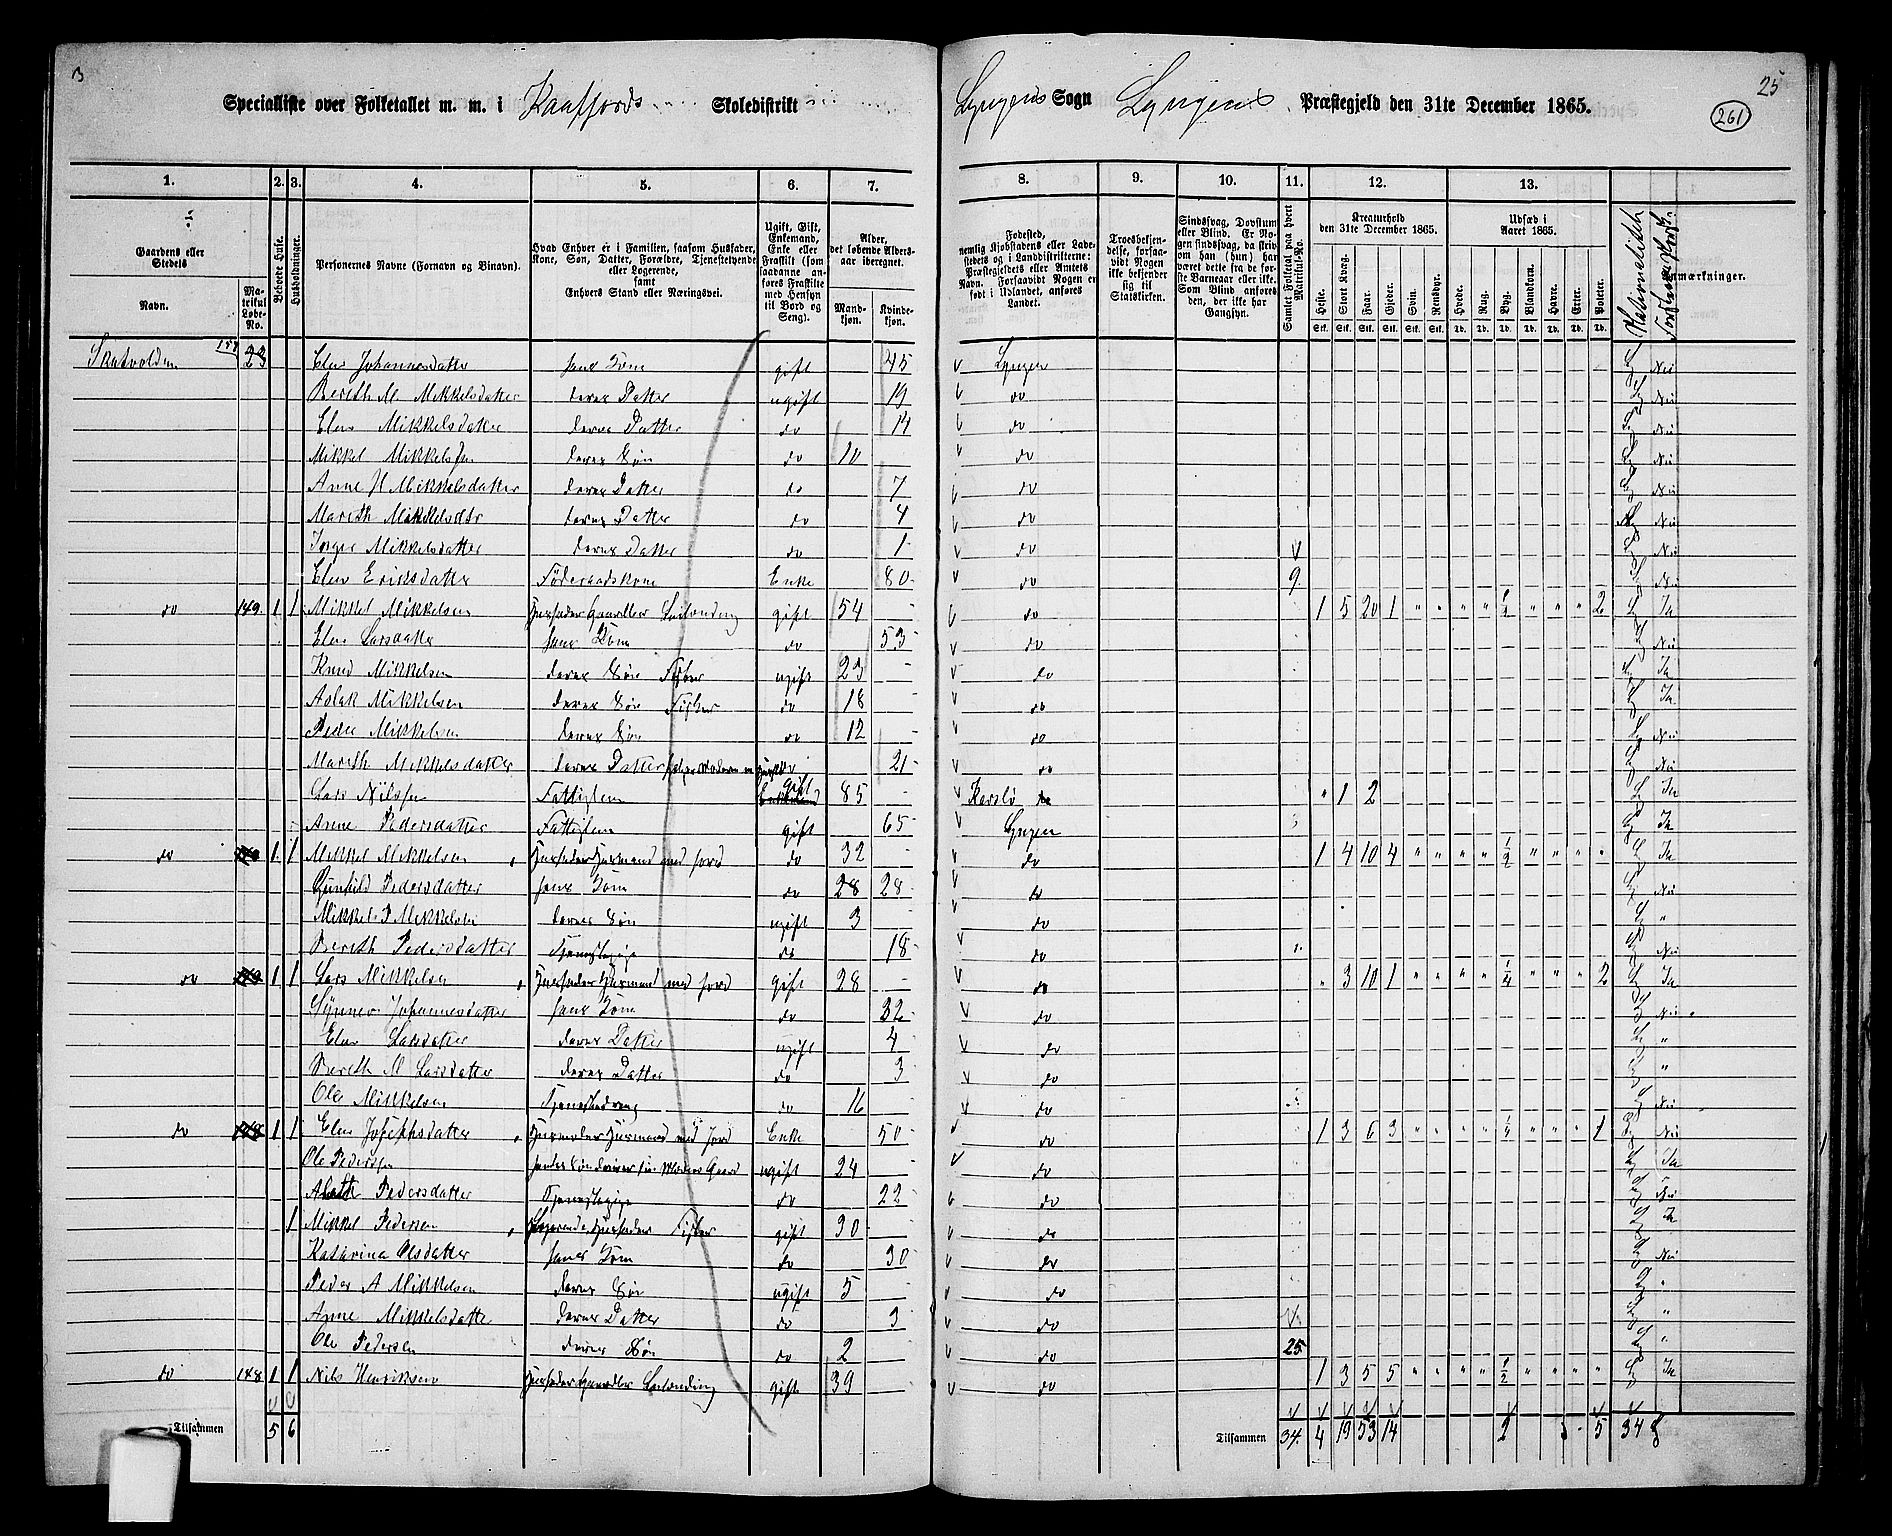 25
261
Specialliste over Folketallet m. m. i Kaafjords Skoledistrikt Lyngens Sogn Lyngens Præstegjeld den 31te December 1865.
1. 2. 3. 4. 5. 6. 7. 8. 9. 10. 11. 12. 13.
Gaardens eller Stedets
Navn.
Matrikul Løbe-No.
Beboede Huse.
Husholdninger.
Personernes Navne (Fornavn og Binavn).
Hvad Enhver er i Familien, saasom Husfader, Kone, Søn, Datter, Forældre, Tjenestetyende eller Logerende, samt Enhvers Stand eller Næringsvei.
Ugift, Gift, Enkemand, Enke eller Fraskilt (som saadanne anføres Fraskilte med Hensyn til Bord og Seng).
Alder, det løbende Aldersaar iberegnet.
Mandkjøn. Kvindekjøn.
Fødested, nemlig Kjøbstadens eller Ladestedets og i Landdistrikterne: Præstegjeldets eller Amtets Navn. Forsaavidt Nogen er født i Udlandet, anføres Landet.
Troesbekjendelse, forsaavidt Nogen ikke bekjender sig til Statskirken.
Sindssvag, Døvstum eller Blind. Er Nogen sindssvag, da skrives han (hun) har været dette fra de første Barneaar eller ikke. Som Blind anføres den, der ikke har Gangsyn.
Samlet Folketal paa hvert Matrikul-No.
Kreaturhold den 31te December 1865.
Heste. Stort Kvæg. Faar. Gjeder. Svin. Rensdyr.
Udsæd i Aaret 1865.
Hvede. Rug. Byg. Blandkorn. Havre. Erter. Poteter.
Nationalitet
Anmærkninger.
23 Elen Johannesdatter hans Kone gift 45 Lyngen Nei
Bereth M. Mikkelsdatter deres Datter ugift 19 do Nei
Elen Mikkelsdatter deres Datter do 14 do Nei
Mikkel Mikkelsen deres Søn do 10 do Nei
Anne H Mikkelsdatter deres Datter do 7 do Nei
Mareth Mikkelsdtr deres Datter do 4 do Nei
Inger Mikkelsdatter deres Datter do 1 do Nei
Elen Eriksdatter Føderaadskone Enke 80 do 9. Nei
do 149. 1 1 Mikkel Mikkelsen Husfader Gaardbr Leilending gift 54 do 1 5 20 1 " " " " 1/2 " " " 2 Ja
Elen Larsdatter hans Kone do 53 do Nei
Knud Mikkelsen deres Søn Fisker ugift 23 do Ja
Aslak Mikkelsen deres Søn Fisker do 18 do Ja
Peder Mikkelsen deres Søn do 12 do Nei
Mareth Mikkelsdatter deres Datter 21 do Nei
Lars Nilssen Fattiglem gift 85 Karesso " 1 2 Ja
Anne Pedersdatter Fattiglem gift 65 Lyngen Ja
do 1 1 Mikkel Mikkelsen Husfader Husmand med Jord do 32 do 1 4 10 4 " " " " 1/2 " " " " Ja
Gunhild Pedersdatter hans Kone do 28 28 do Nei
Mikkel P Mikkelsen deres Søn ugift 3 do "
Bereth Pedersdatter Tjenestepige do 18 do Nei
do 1 1 Lars Mikkelsen Husfader Husmand med Jord gift 28 do " 3 10 1 " " " " 1/4 " " " 2 Ja
Johannesdatter hans Kone do 32 do Nei
Elen Larsdatter deres Datter ugift 4 do "
Bereth M Larsdatter deres Datter do 3 do "
Ole Mikkelsen Tjenestedreng do 16 do Nei
do 1 1 Elen Josephsdatter Husmoder Husmand med Jord Enke 50 do 1 3 6 3 " " " " 1/4 " " " 1 Nei
Ole Pedersen ugift 24 do Ja
Pedersdatter Tjenestepige do 22 do Nei
1 Mikkel Pedersen Logerende Husfader Fisker gift 30 do Ja
Katarina Olsdatter hans Kone do 30 do Nei
Peder A Mikkelsen deres Søn ugift 5 do "
Anne Mikkelsdatter deres Datter do 3 do "
Ole Pedersen deres Søn do 2 do 25 "
do 148 1 1 Nils Henriksen Husfader Gaardbr Leilending gift 39 do 1 3 5 5 " " " " 1/2 " " " " Ja
Tilsammen 5 6 Tilsammen 34. 4 19 53 14 2 5 34